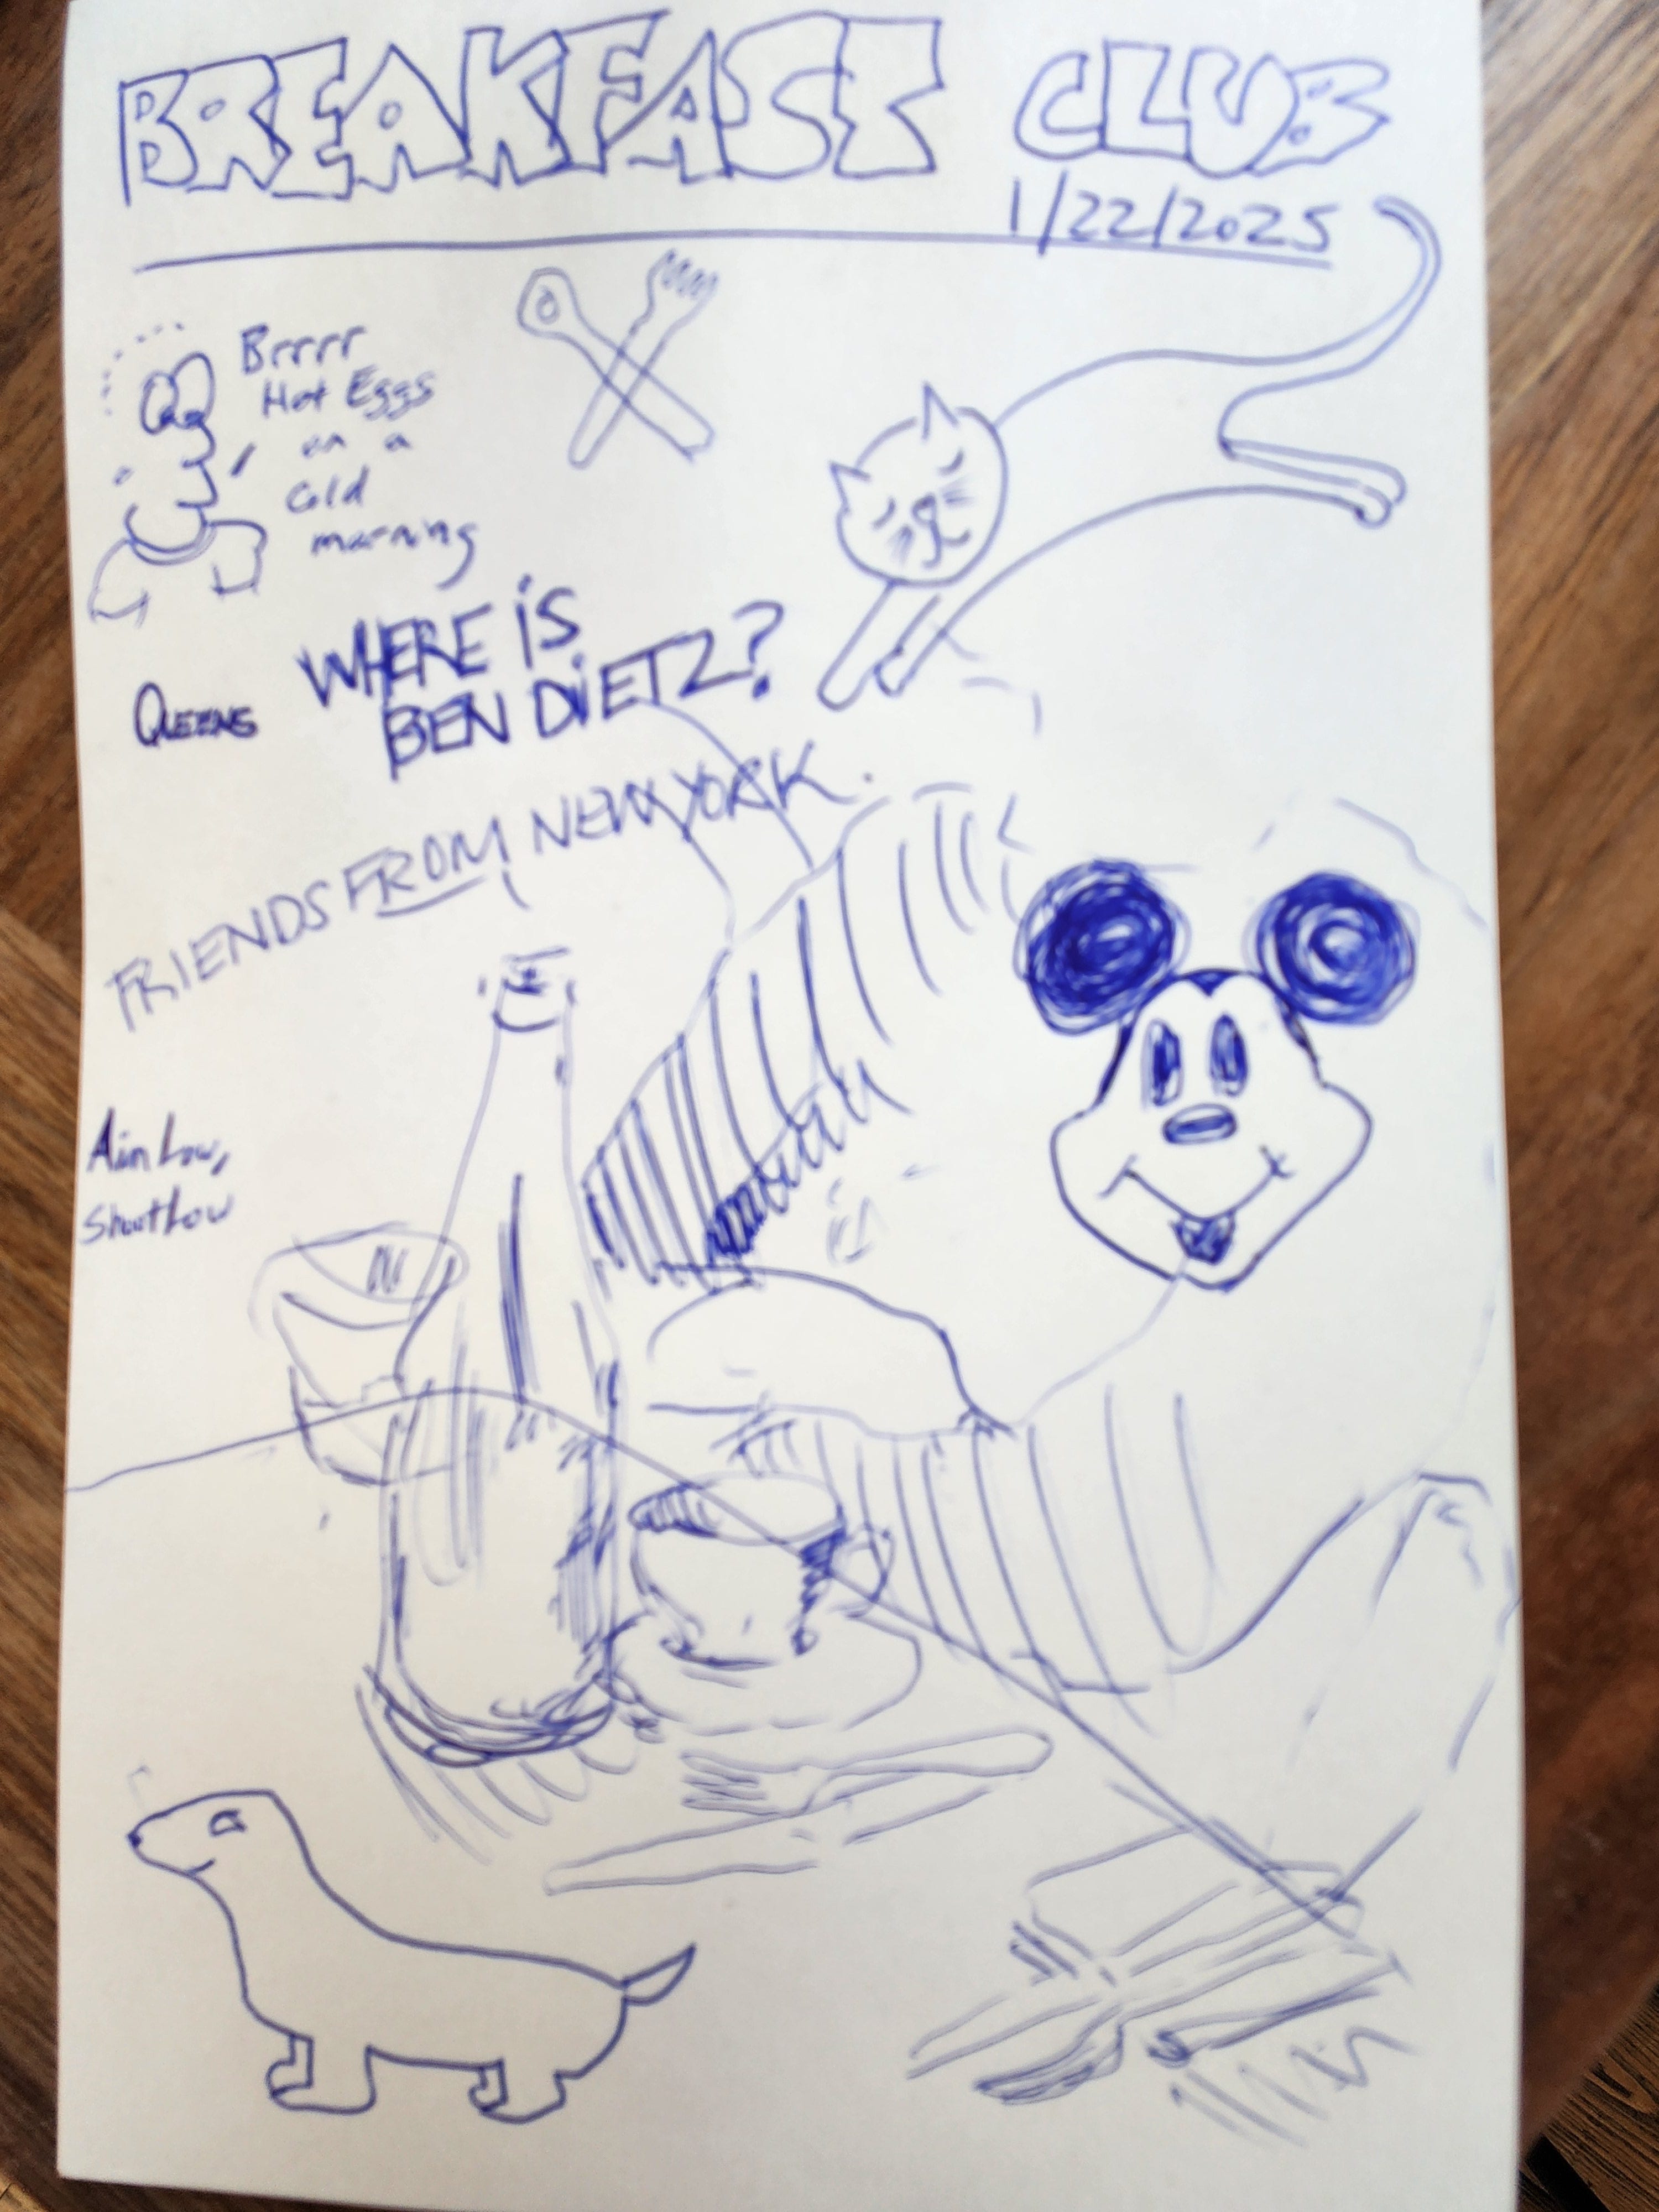 BREAKFAST CLUB
1/22/2025
Brrrr
Hot Eggs
on a
Cold
morning
WHERE IS
BEN DIETZ?
QUEENS
FRIENDS FROM NEW YORK.
Aim Low,
Shoot Low